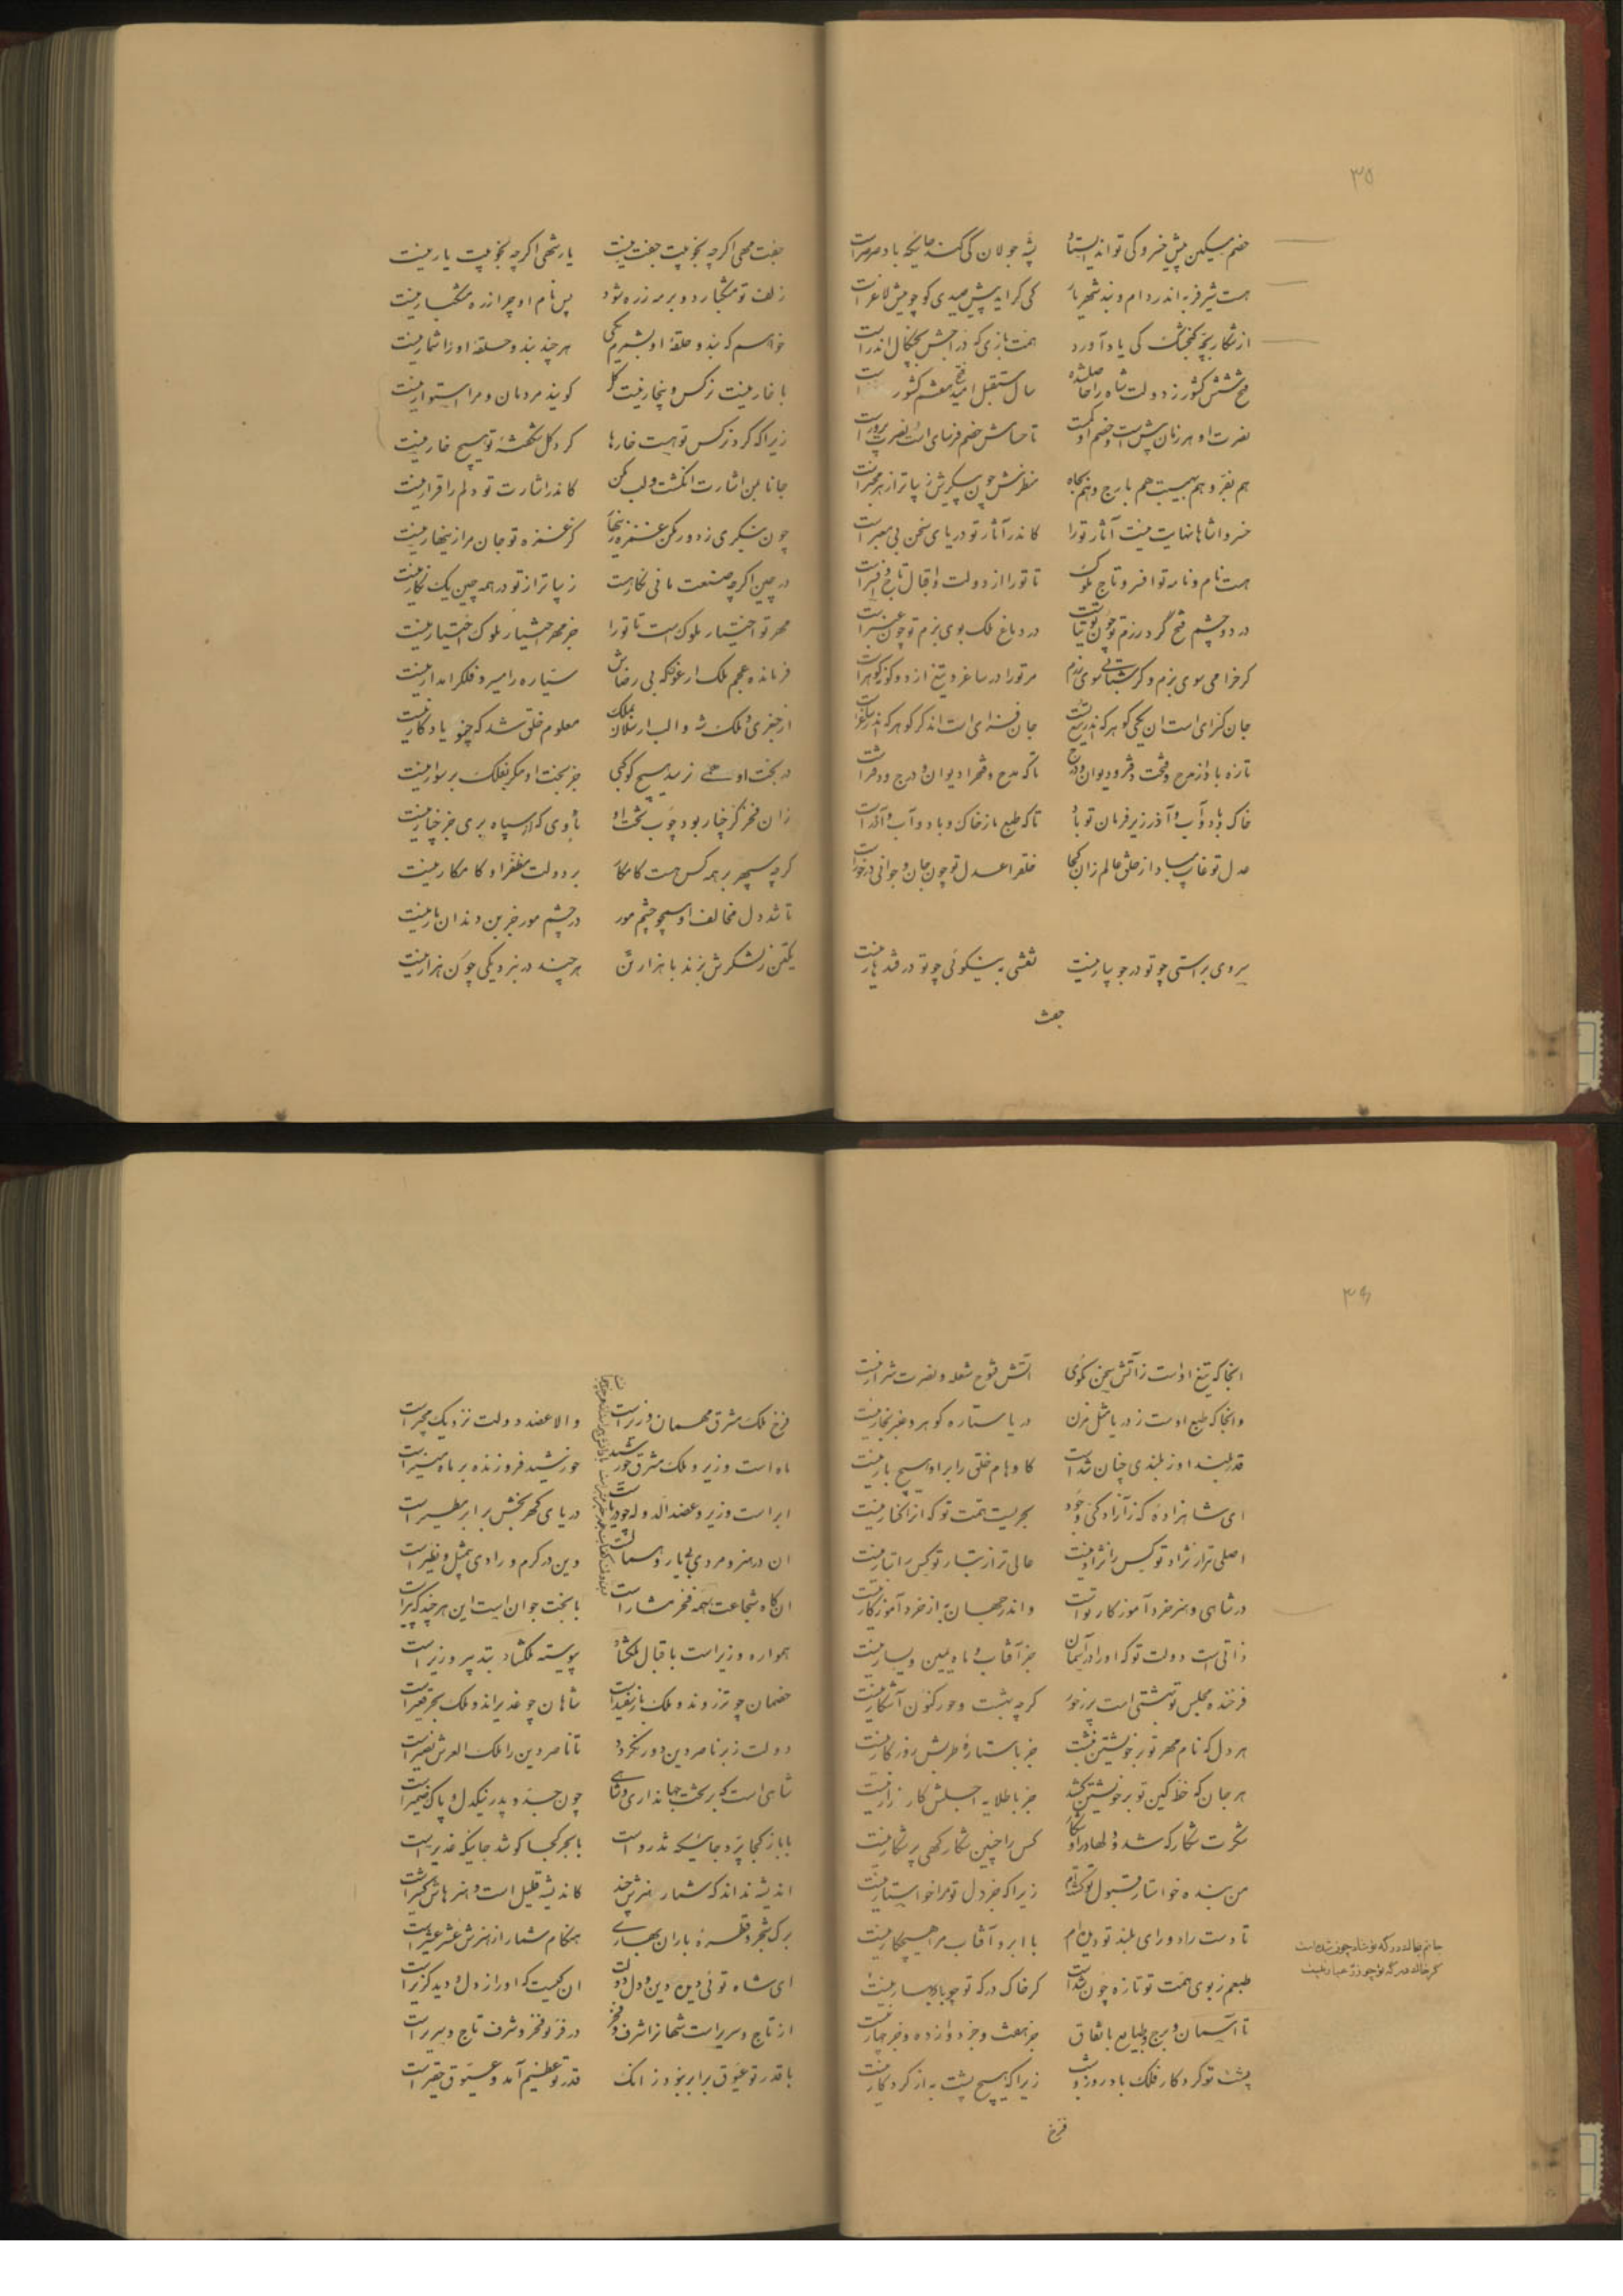 ۳۵
خصم مسکین پیش خسرو کی تواند ایستاد پشه جولان کی کند جائیکه باد صرصر است
هست شیر فربه اندر دام و بند شهریار کی کراید پیش صیدی کو چو میش لاغر است
از شکار بچه کنجشک کی یاد آورد همت بازی که در اجنش بچنکال اندر است
فتح شش کشور ز دولت شاه را حاصل شده سال مستقبل امید فتح هفتم کشور است
نصرت او هر زمان بیش است و خصم او کمست تا حسامش خصم فرسای است نصرت پرور است
هم بفر و هم بهیبت هم بارج و هم بجاه منظرش چون بنکرش زیباتر از هر مخبر است
خسروا شاها نهایت نیست آثار تو را کاندر آثار تو دریای سخن بی معبر است
هست نام و نامه تو افسر و تاج ملوک تا تو را از دولت و اقبال تاج و افسر است
در دو چشم فتح گرد رزم تو چون توتیاست در دماغ ملک بوی بزم تو چون عنبر است
کر خرامی سوی بزم و کر شتابی سوی رزم مر تو را در ساغر و تیغ از دو کوهر است
جان کزای است ان یکی کوهر که اندر تیغ تست جان فزای است اندکر کوهر که اندر ساغر است
تازه باد از مدح و فتحت دفتر و دیوان و درج تا که مدح و فتح را دیوان و درج و دفتر است
خاک و باد و آب و آذر زیر فرمان تو باد تا که طبع ما ز خاک و باد و آب و آذر است
عدل تو غایب مباد از خلق عالم زان کجا خلق را عدل تو چون جان و جوانی در خور است
سروی براستی چو تو در جویبار نیست نقشی بنیکوئی چو تو در قندهار نیست
جفت
جفت مهی اکرچه بخوبیت جفت نیست یار شهی اکرچه بخوبیت یار نیست
زلف تو مشکبارد و بر مه زره شود پس نام او چرا زره مشکبار نیست
خواهم که بند و حلقهٔ او بشمرم یکی هرچند بند و حلقهٔ او را شمار نیست
با خار نیست نرکس و بیخار نیست کل کویند مردمان و مرا استوار نیست
زیرا که کرد نرکس تو هست خارها کرد کل شکفتهٔ تو هیچ خار نیست
جانا بمن اشارت انکشت و لب مکن کاندر اشارت تو دلم را قرار نیست
چون بنکری ز دور مکن غمزه زینهار کز غمزه تو جان مرا زینهار نیست
در چین اکرچه صنعت مانی نکارهاست زیباتر از تو در همه چین یک نکار نیست
مهر تو اختیار ملوک است تا تو را جز مهر اختیار ملوک اختیار نیست
فرمانده عجم ملک ارغو که بی رضاش سیاره را مسیر و فلک را مدار نیست
از جغری و ملک شه و الب ارسلان بملک معلوم خلق شد که چنو یادکار نیست
در بخت او همی نرسد هیچ کوکبی جز بخت او مکر بفلک بر سوار نیست
زان فخر کز چنار بود چوب تخت او بادی که از سپاه بری جز چنار نیست
کرچه سپهر بر همه کس هست کامکار بر دولت مظفر او کامکار نیست
تا شد دل مخالف او همچو چشم مور در چشم مور جز بن دندان مار نیست
یکتن ز لشکرش بزند با هزار تن هرچند در نبرد یکی چون هزار نیست
۳۶
انجا که تیغ اوست ز آتش سخن مکوی کاتش فتوح شعله و نصرت شرار نیست
وانجا که طبع اوست ز دریا مثل مزن دریا ستاره کوهر و عنبر بخار نیست
قدر بلند او ز بلندی چنان شد است کاوهام خلق را بر او هیچ بار نیست
ای شاهزادهٔ که ز آزادکی و جود بحریست همت تو که انرا کنار نیست
اصلی تر از نژاد تو کس را نژاد نیست عالی تر از تبار تو کس را تبار نیست
در شاهی و هنر خرد آموزکار تو است و اندر جهان به از خرد آموزکار نیست
ذاتی است دولت تو که او را در آسمان جز آفتاب و ماه یمین و یسار نیست
فرخنده مجلس تو بهشتی است پر ز حور کرچه بهشت و حور کنون آشکار نیست
هر دل که نام مهر تو بر خویشتن نبشت جز با ستارهٔ طربش روزکار نیست
هر جان که خط کین تو بر خویشتن کشید جز با طلایه اجلش کارزار نیست
شکرت شکار که شد و دلها در او شکار کس را چنین شکارکهی پر شکار نیست
من بنده خواستار قبول تو کشته‌ام زیرا که جز دل تو مرا خواستار نیست
تا دست راد و رای بلند تو دیده‌ام با ابر و آفتاب مرا هیچکار نیست
طبعم ز بوی همت تو تازه چون شد است کر خاک درکه تو چو باد بهار نیست
جانم بخاک درکه تو شاد چون شده است
کر خاک درکه تو چو زر عیار نیست
تا آسمان و برج و طبایع باتفاق جز هفت و جز دوازده و جز چهار نیست
پشت تو کردکار فلک باد روز و شب زیرا که هیچ پشت به از کردکار نیست
فرخ
فرخ ملک مشرق مهمان وزیر است والا عضد دولت نزدیک مجیر است
ماه است وزیر و ملک مشرق خورشید خورشید فروزنده بر ماه منیر است
ابر است وزیر و عضد الدوله چو دریاست دریای کهر بخش بر ابر مطیر است
ان در هنر و مردی بی یار و همال است وین در کرم و رادی بیمثل و نظیر است
ان کاه شجاعت بهمه فخر مشار است با بخت جوان است این هرچند که پیر است
همواره وزیر است باقبال ملکشاد پیوسته ملکشاد بتدبیر وزیر است
خصمان چو تذروند و ملک باز سفید است شاهان چو غدیراند و ملک بحر قعیر است
دولت ز بر ناصر دین دور نکردد تا ناصر دین را ملک العرش نصیر است
شاهی است که بر تخت جهانداری و شاهی چون جد و پدر نیکدل و پاک ضمیر است
با باز کجا پرد جائیکه تذرو است با بحر کجا کوشد جائیکه غدیر است
اندیشه نداند که شمار هنرش چند کاندیشه قلیل است و هنرهاش کثیر است
برک شجر و قطرهٔ باران بهاری هنکام شمار از هنرش عشر عشیر است
ای شاه توئی دین و دل و دولت ان کیست که او را ز دل و دیده کزیر است
از تاج و سریر است شهانرا شرف و فخر در فر تو فخر و شرف تاج و سریر است
با قدر تو عیوق برابر نبود زانک قدر تو عظیم آمد و عیوق حقیر است